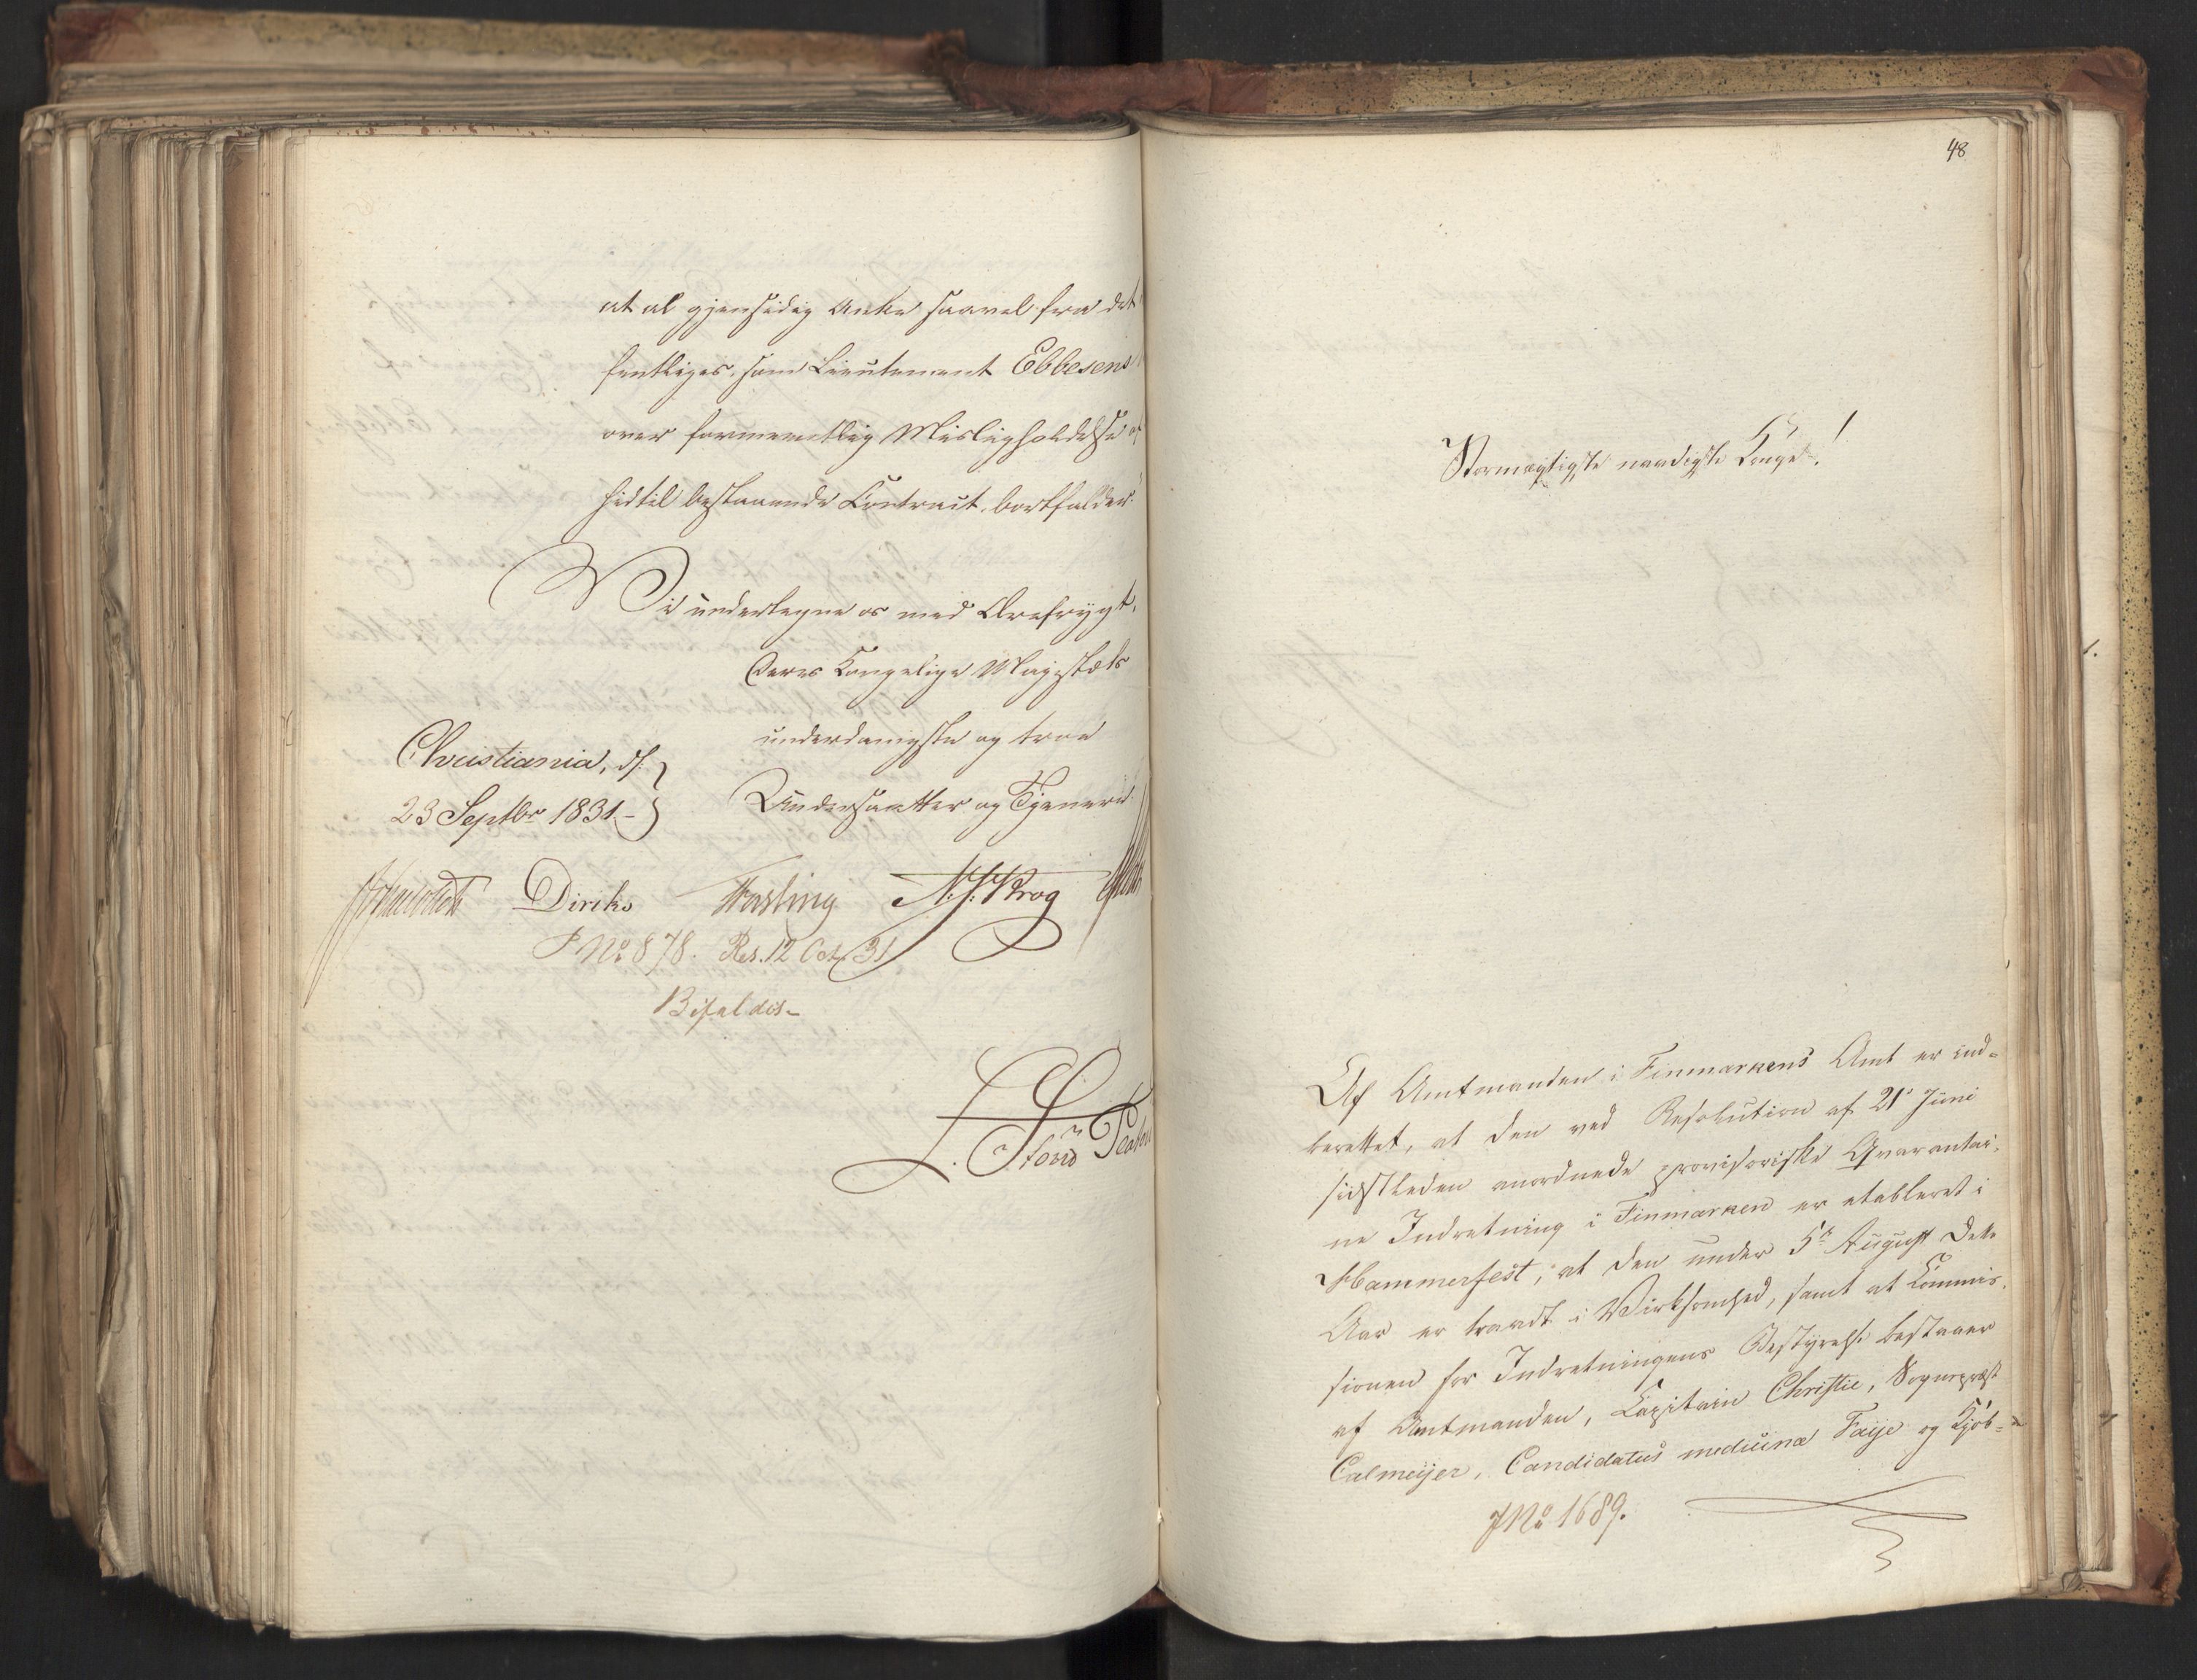 at al gjensidig Anke saavel fra det
fentliges, som Lieutenant Ebbesens
over formeentlig Misligholdelse af
hidtil bestaaende Contract, bortfalder.
Vi undertegne os med Ærefrygt,
Deres Kongelige Majestæts
underdanigste og troe
Christiania, d.
23 Septbr 1831.
Undersaatter og Tjenere
Diriks Fasting N. J. Krog
J No 878. Res. 12 Oct. 31
Bifaldes
48
Stormægtigste naadigste Konge!
Af Amtmanden i Finmarkens Amt er ind-
berettet, at den ved Resolution af 21 Juni
sidstleden anordnede provisoriske Qvarantai-
ne Indretning i Finmarken er etableret i
Hammerfest, at den under 5te August dette
Aar er traadt i Virksomhed, samt at Commis-
sionen for Indretningens Bestyrelse bestaaer
af Amtmanden, Capitain Christie, Sognepræst
Calmeijer, Candidatus medicinæ Faije og Kjøb-
J No 1689.